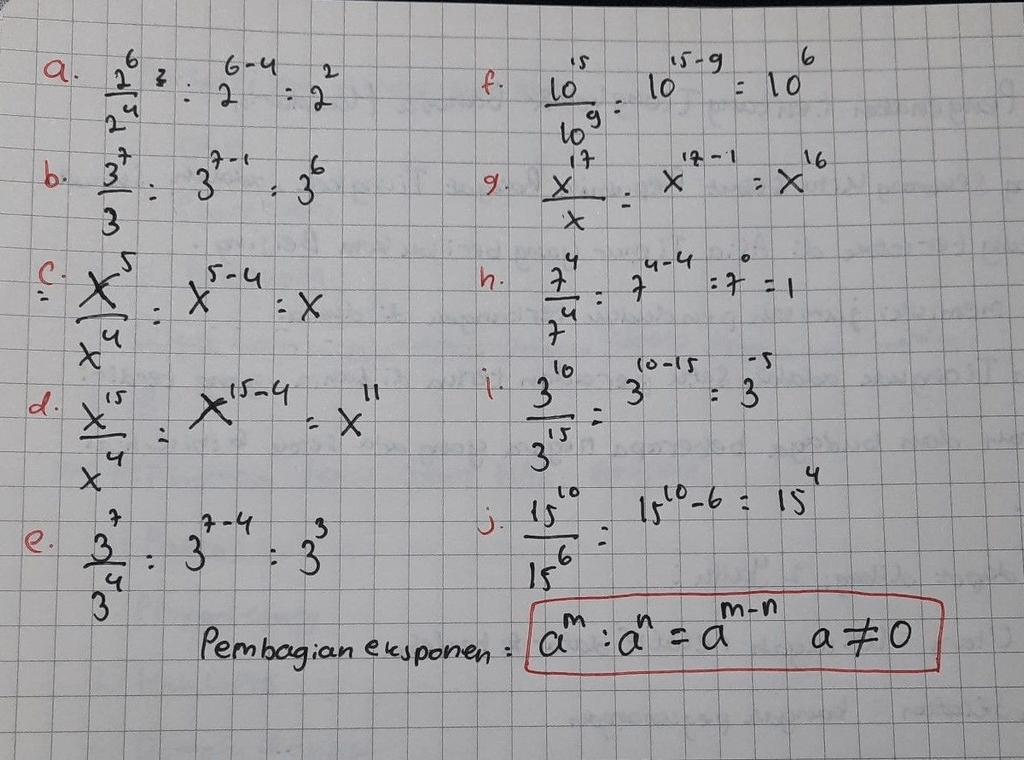 a. 2⁶/2⁴ = 2⁶⁻⁴ = 2²
b. 3⁷/3 = 3⁷⁻¹ = 3⁶
c. x⁵/x⁴ = x⁵⁻⁴ = x
d. x¹⁵/x⁴ = x¹⁵⁻⁴ = x¹¹
e. 3⁷/3⁴ = 3⁷⁻⁴ = 3³
f. 10¹⁵/10⁹ = 10¹⁵⁻⁹ = 10⁶
g. x¹⁷/x = x¹⁷⁻¹ = x¹⁶
h. 7⁴/7⁴ = 7⁴⁻⁴ = 7⁰ = 1
i. 3¹⁰/3¹⁵ = 3¹⁰⁻¹⁵ = 3⁻⁵
j. 15¹⁰/15⁶ = 15¹⁰⁻⁶ = 15⁴
Pembagian eksponen = aᵐ : aⁿ = aᵐ⁻ⁿ a ≠ 0